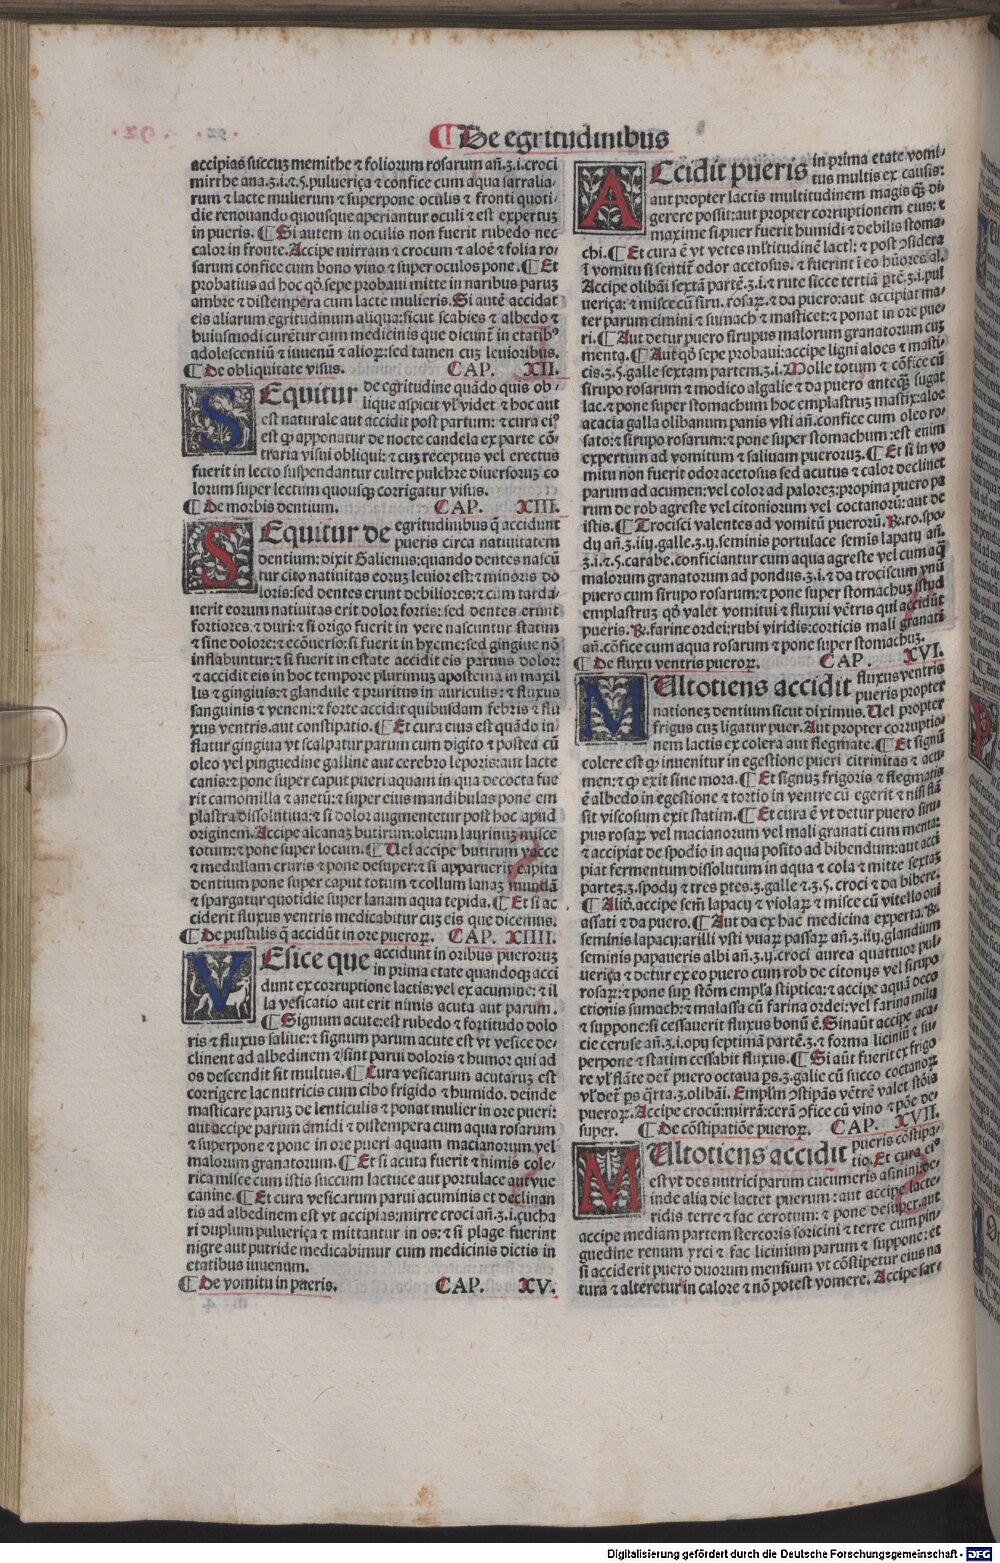 ¶ De egritudinibus
accipias succuȝ memithe ⁊ foliorum rosarum añ.ʒ.i.croci
mirrhe ana.ʒ.i.⁊.5.pulueriça ⁊ confice cum aqua sarralia-
rum ⁊ lacte mulierum ⁊ superpone oculis ⁊ fronti quoti-
die renouando quousque aperiantur oculi ⁊ est expertuȝ
in pueris. ¶ Si autem in oculis non fuerit rubedo nec
calor in fronte. Accipe mirram ⁊ crocum ⁊ aloe ⁊ folia ro-
sarum confice cum bono vino ⁊ super oculos pone. ¶ Et
probatius ad hoc qđ sepe probaui mitte in naribus paruȝ
ambre ⁊ distempera cum lacte mulieris. Si autē accidat
eis aliarum egritudinum aliqua: sicut scabies ⁊ albedo ⁊
huiusmodi curētur cum medicinis que dicunt̄ in etatibꝰ
adolescentiū ⁊ iuuenū ⁊ alioꝝ: sed tamen cuȝ leuioribus.
¶ De obliquitate visus. CAP. XII.
SEquitur de egritudine quādo quis ob-
lique aspicit vl̄ videt ⁊ hoc aut
est naturale aut accidit post partum: ⁊ cura eiꝰ
est ꝙ apponatur de nocte candela ex parte cō
traria visui obliqui: ⁊ cuȝ receptus vel erectus
fuerit in lecto suspendantur cultre pulchre diuersoruȝ co
lorum super lectum quousqȝ corrigatur visus.
¶ De morbis dentium. CAP. XIII.
SEquitur de egritudinibus q̄ accidunt
pueris circa natiuitatem
dentium: dixit Galienus: quando dentes nascū
tur cito natiuitas eoruȝ leuior est: ⁊ minoris do
loris: sed dentes erunt debiliores: ⁊ cum tarda-
uerit eorum natiuitas erit dolor fortis: sed dentes erunt
fortiores. ⁊ duri: ⁊ si origo fuerit in vere nascuntur statim
⁊ sine dolore: ⁊ ecōuerso: si fuerit in hyeme: sed gingiue nō
inflabuntur: ⁊ si fuerit in estate accidit eis paruus dolor:
⁊ accidit eis in hoc tempore plurimuȝ apostema in maxil
lis ⁊ gingiuis: ⁊ glandule ⁊ pruritus in auriculis: ⁊ fluxus
sanguinis ⁊ veneni: ⁊ forte accidit quibusdam febris ⁊ flu
xus ventris. aut constipatio. ¶ Et cura eius est quādo in-
flatur gingiua vt scalpatur parum cum digito ⁊ postea cū
oleo vel pinguedine galline aut cerebro leporis: aut lacte
canis: ⁊ pone super caput pueri aquam in qua decocta fue
rit camomilla ⁊ anetū: ⁊ super eius mandibulas pone em
plastra dissolutiua: ⁊ si dolor augmentetur post hoc apud
originem. Accipe alcanaȝ butirum: oleum laurinuȝ misce
totum: ⁊ pone super locum. ¶ Uel accipe butirum vacce
⁊ medullam cruris ⁊ pone desuper: ⁊ si apparuerit capita
dentium pone super caput totum ⁊ collum lanaȝ mundā
⁊ spargatur quotidie super lanam aqua tepida. ¶ Et si ac
ciderit fluxus ventris medicabitur cuȝ eis que dicemus.
¶ De pustulis q̄ accidūt in ore pueroꝝ. CAP. XIIII.
VEsice que accidunt in oribus pueroruȝ
in prima etate quandoqȝ acci
dunt ex corruptione lactis: vel ex acumine: ⁊ il
la vesicatio aut erit nimis acuta aut parum.
¶ Signum acute: est rubedo ⁊ fortitudo dolo
ris ⁊ fluxus saliue: ⁊ signum parum acute est vt vesice de-
clinent ad albedinem ⁊ sint parui doloris ⁊ humor qui ad
os descendit sit multus. ¶ Cura vesicarum acutaruȝ est
corrigere lac nutricis cum cibo frigido ⁊ humido. deinde
masticare paruȝ de lenticulis ⁊ ponat mulier in ore pueri:
aut accipe parum amidi ⁊ distempera cum aqua rosarum
⁊ superpone ⁊ pone in ore pueri aquam macianorum vel
malorum granatorum. ¶ Et si acuta fuerit ⁊ nimis cole-
rica misce cum istis succum lactuce aut portulace aut vue
canine. ¶ Et cura vesicarum parui acuminis et declinan
tis ad albedinem est vt accipias: mirre croci añ.ʒ.i.çucha
ri duplum pulueriça ⁊ mittantur in os: ⁊ si plage fuerint
nigre aut putride medicabimur cum medicinis dictis in
etatibus iuuenum.
¶ De vomitu in pueris. CAP. XV.
ACcidit pueris in prima etate vomi-
tus multis ex causis:
aut propter lactis multitudinem magis qȝ di-
gerere possit: aut propter corruptionem eius: ⁊
maxime si puer fuerit humidi ⁊ debilis stoma-
chi. ¶ Et cura ē vt vetes ml̄titudinē lactl: ⁊ post ꝯsidera
ī vomitu si sentit̄ odor acetosus. ⁊ fuerint ī eo hūores al.
Accipe olibani sextā partē.ʒ.i.⁊ rute sicce tertiā ꝑtē.ʒ.i.pul
ueriça: ⁊ misce cū siru. rosaꝝ. ⁊ da puero: aut accipiat ma-
ter parum cimini ⁊ sumach ⁊ masticet: ⁊ ponat in ore pue-
ri. ¶ Aut detur puero sirupus malorum granatorum cuȝ
menta. ¶ Aut qđ sepe probaui: accipe ligni aloes ⁊ masti-
cis.ʒ.5.galle sextam partem.ʒ.i. Molle totum ⁊ cōfice cū
sirupo rosarum ⁊ modico algalie ⁊ da puero anteqȝ sugat
lac. ⁊ pone super stomachum hoc emplastruȝ mastix: aloe
acacia galla olibanum panis vsti añ. confice cum oleo ro-
sato: ⁊ sirupo rosarum: ⁊ pone super stomachum: est enim
expertum ad vomitum ⁊ saliuam pueroruȝ. ¶ Et si in vo
mitu non fuerit odor acetosus sed acutus ⁊ calor declinet
parum ad acumen: vel color ad palorez: propina puero pa
rum de rob agreste vel citoniorum vel coctanorū: aut de
istis. ¶ Trocisci valentes ad vomitū puerorū. ℞. ro. spo-
dy añ.ʒ.iiy.galle.ʒ.y.seminis portulace semis lapaty añ.
ʒ.i.⁊.5.carabe. conficiantur cum aqua agreste vel cum aq̄
malorum granatorum ad pondus.ʒ.i.⁊ da trociscum vnū
puero cum sirupo rosarum: ⁊ pone super stomachuȝ istud
emplastruȝ qđ valet vomitui ⁊ fluxui vētris qui accidūt
pueris. ℞. farine ordei: rubi viridis: corticis mali granati
añ. cōfice cum aqua rosarum ⁊ pone super stomachuȝ.
¶ De fluxu ventris pueroꝝ. CAP. XVI.
MUltotiens accidit fluxus ventris
pueris propter
nationeȝ dentium sicut diximus. Uel propter
frigus cuȝ ligatur puer. Aut propter corruptio-
nem lactis ex colera aut flegmate. ¶ Et signū
colere est ꝙ inuenitur in egestione pueri citrinitas ⁊ acu-
men: ⁊ ꝙ exit sine mora. ¶ Et signuȝ frigoris ⁊ flegmatis
ē albedo in egestione ⁊ tortio in ventre cū egerit ⁊ nisi flā
sit viscosum exit statim. ¶ Et cura ē vt detur puero siru-
pus rosaꝝ vel macianorum vel mali granati cum menta:
⁊ accipiat de spodio in aqua posito ad bibendum: aut acci
piat fermentum dissolutum in aqua ⁊ cola ⁊ mitte sextaȝ
parteȝ.ʒ.spody ⁊ tres ꝑtes.ʒ.galle ⁊.ʒ.5.croci ⁊ da bibere.
¶ Aliđ. accipe sem̄ lapacy ⁊ violaꝝ ⁊ misce cū vitello oui
assati ⁊ da puero. ¶ Aut da ex hac medicina experta. ℞.
seminis lapacy: arilli vsti vuaꝝ passaꝝ añ.ʒ.iiy.glandium
seminis papaueris albi añ.ʒ.y.croci aurea quattuor pul-
ueriça ⁊ detur ex eo puero cum rob de citonijs vel sirupo
rosaꝝ: ⁊ pone suꝑ stōm empla stiptica: ⁊ accipe aquā deco
ctionis sumach: ⁊ malassa cū farina ordei: vel farina milij
⁊ suppone: si cessauerit fluxus bonū ē. Sin aūt accipe aca-
cie ceruse añ.ʒ.i.opij septimam partē.ʒ.⁊ forma liciniū ⁊ su-
perpone ⁊ statim cessabit fluxus. ¶ Si aūt fuerit ex frigo
re vl̄ flāte det̄ puero octaua ꝑs.ʒ.galle cū succo coctanoꝝ
vl̄ det̄ ꝑs q̄rta.ʒ.olibāi. Emplm̄ ꝯstipās vētrē valet stōis
pueroꝝ. Accipe crocū: mirrā: cerā ꝯfice cū vino ⁊ pōe de-
super. ¶ De cōstipatiōe pueroꝝ. CAP. XVII.
MUltotiens accidit pueris cōstipa-
tio. Et cura eiꝰ
est vt des nutrici parum cucumeris asinini: de-
inde alia die lactet puerum: aut accipe lacte-
ridis terre ⁊ fac cerotum: ⁊ pone desuper. aut
accipe mediam partem stercoris soricini ⁊ terre cum pin-
guedine renum yrci ⁊ fac licinium parum ⁊ suppone: et
si acciderit puero duorum mensium vt cōstipetur eius na
tura ⁊ alteretur in calore ⁊ nō potest vomere. Accipe sar-
Digitalisierung gefördert durch die Deutsche Forschungsgemeinschaft - DFG